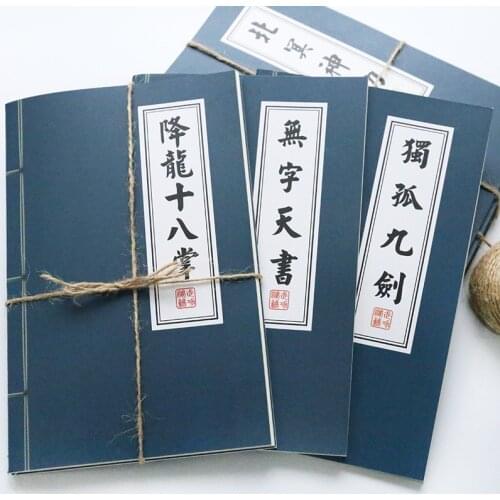 降龍十八掌
無字天書
獨孤九劍
北冥神